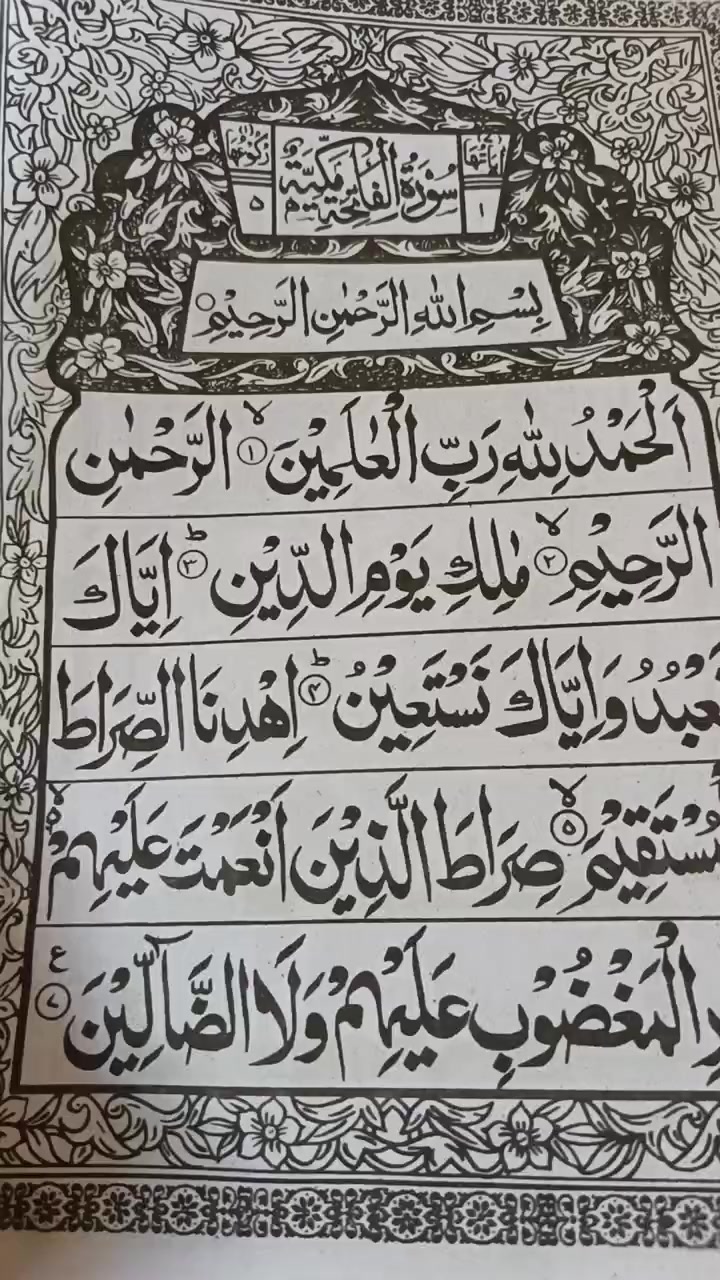 سُوْرَةُ الْفَاتِحَةِ مَكِّيَّةٌ
١
٥
بِسْمِ اللهِ الرَّحْمٰنِ الرَّحِيْمِ
اَلْحَمْدُ لِلّٰهِ رَبِّ الْعٰلَمِيْنَ ۙ﴿١﴾ الرَّحْمٰنِ
الرَّحِيْمِ ۙ﴿٢﴾ مٰلِكِ يَوْمِ الدِّيْنِ ؕ﴿٣﴾ اِيَّاكَ
عْبُدُ وَاِيَّاكَ نَسْتَعِيْنُ ؕ﴿٤﴾ اِهْدِنَا الصِّرَاطَ
مُسْتَقِيْمَ ۙ﴿٥﴾ صِرَاطَ الَّذِيْنَ اَنْعَمْتَ عَلَيْهِمْ ۙ۬
رِ الْمَغْضُوْبِ عَلَيْهِمْ وَلَا الضَّآلِّيْنَ ﴿٧﴾ ع